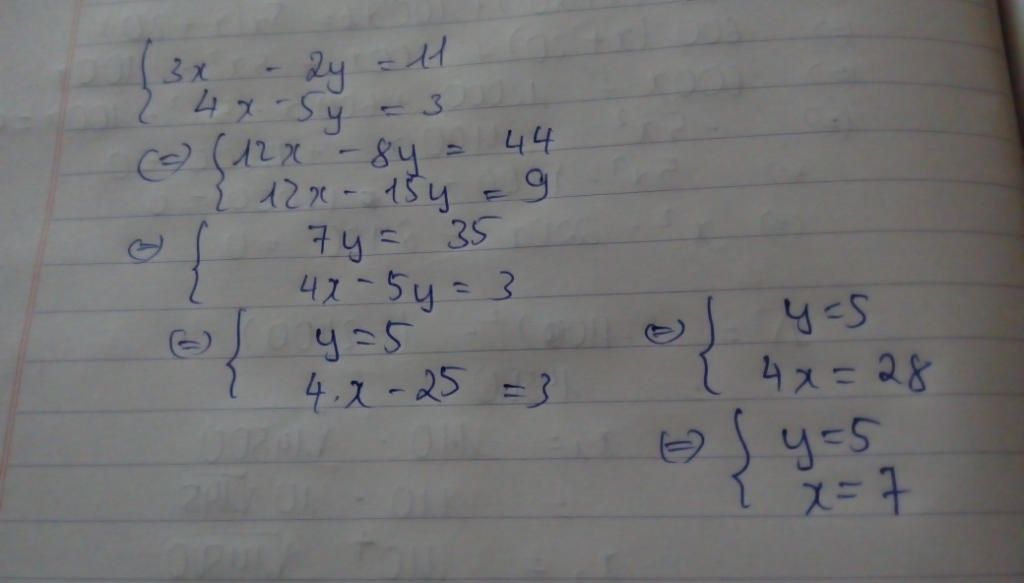 { 3x - 2y = 11
4x - 5y = 3
(=) { 12x - 8y = 44
12x - 15y = 9
(=) { 7y = 35
4x - 5y = 3
(=) { y = 5
4.x - 25 = 3
(=) { y = 5
4x = 28
(=) { y = 5
x = 7